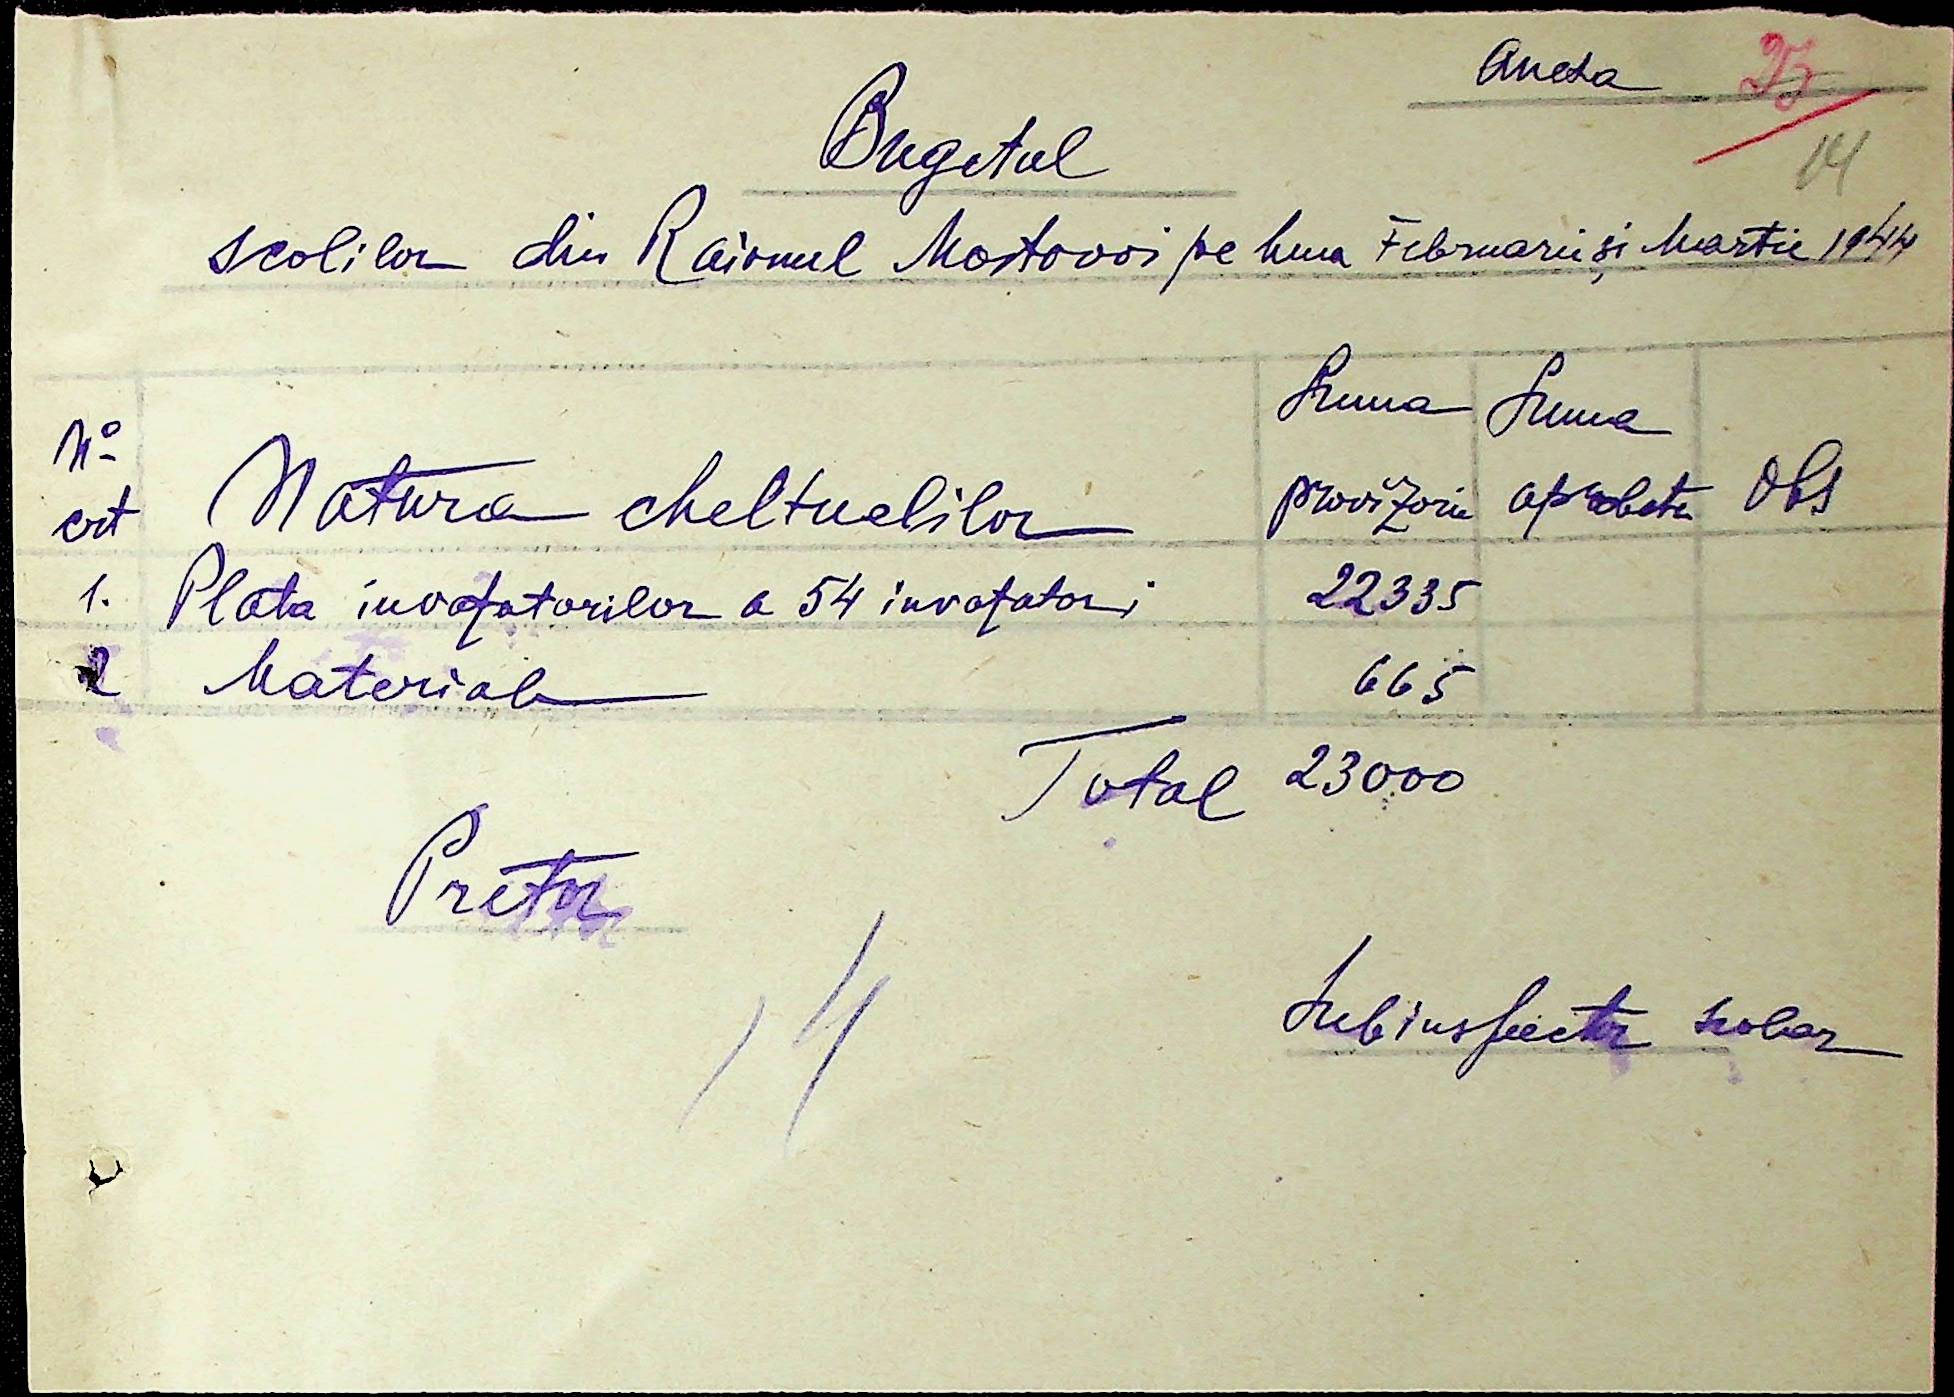 Anexa 23
14
Bugetul
scolilor din Raionul Mostovoi pe luna Februarie și Martie 1944
No crt Natura cheltuelilor Suma provizorie Suma aprobata Obs
1. Plata invațatorilor a 54 invațatori 22335
2 Material 665
Total 23000
Pretor
Subinspector scolar